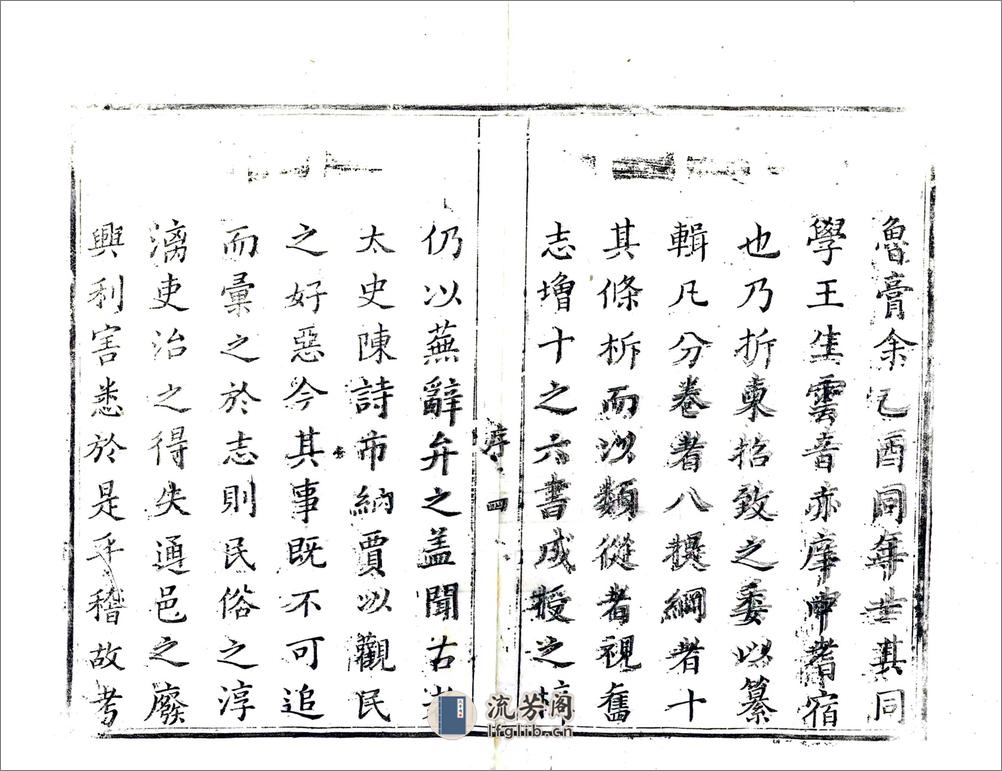 魯膏余乙酉同年士其同
學王生雲音亦庠中耆宿
也乃折柬招致之委以纂
輯凡分卷者八提綱者十
其條析而以類從者視舊
志增十之六書成授之
序 四
仍以蕪辭弁之蓋聞古者
太史陳詩市納賈以觀民
之好惡今其事既不可追
而彙之於志則民俗之淳
漓吏治之得失通邑之廢
興利害悉於是乎稽故考
流芳阁
lfglib.cn